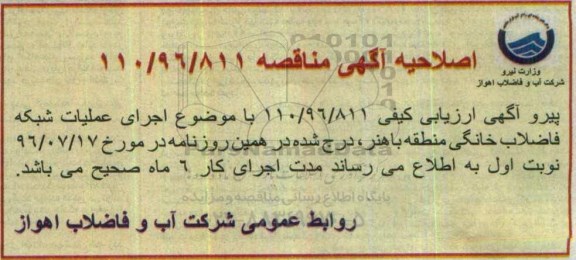 وزارت نیرو
شرکت آب و فاضلاب اهواز
اصلاحیه آگهی مناقصه ۱۱۰/۹۶/۸۱۱
پیرو آگهی ارزیابی کیفی ۱۱۰/۹۶/۸۱۱ با موضوع اجرای عملیات شبکه
فاضلاب خانگی منطقه باهنر، درج شده در همین روزنامه در مورخ ۹۶/۰۷/۱۷
نوبت اول به اطلاع می رساند مدت اجرای کار ۶ ماه صحیح می باشد.
پایگاه اطلاع رسانی مناقصه و مزایده
روابط عمومی شرکت آب و فاضلاب اهواز